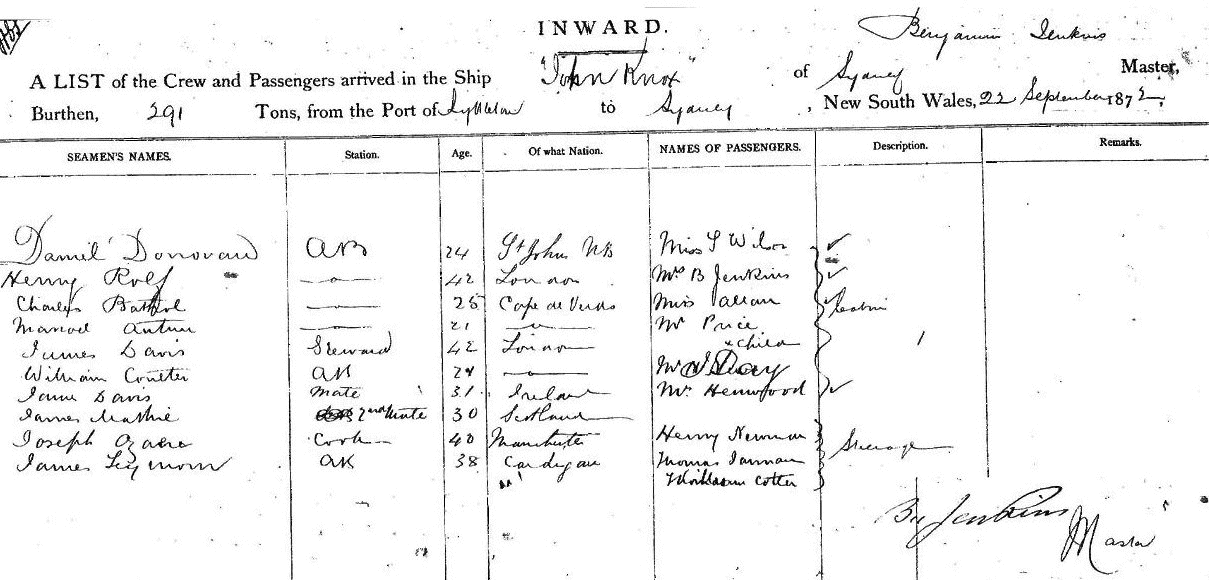 INWARD.
Benjamin Jenkins
A LIST of the Crew and Passengers arrived in the Ship "John Knox" of Sydney Master,
Burthen, 291 Tons, from the Port of Lyttleton to Sydney, New South Wales, 22 September 1872,
SEAMEN'S NAMES. Station. Age. Of what Nation. NAMES OF PASSENGERS. Description. Remarks.
Daniel Donovan AB 24 St John NB Miss S Wilson
Henry Rolf 42 London Mrs B Jenkins
Charles 25 Cape de Verds Miss Cabin
Manoel 21 Mr Price
James Davis Steward 42 London & child
William Coulter AB 24 Mr Day
Davis Mate 31 Ireland Mr Henwood
James Mathie 2nd Mate 30 Scotland
Joseph Cook 40 Manchester Henry Newman Steerage
James Seymour AB 38 Cardigan Thomas Jarman
William Cotter
Bn Jenkins
Master